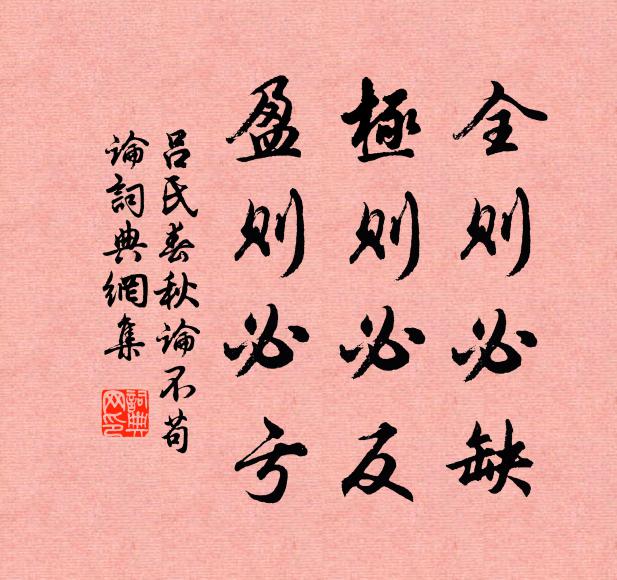 全則必缺
極則必反
盈則必亏
吕氏春秋論不苟
論詞典網集
詞典
网印